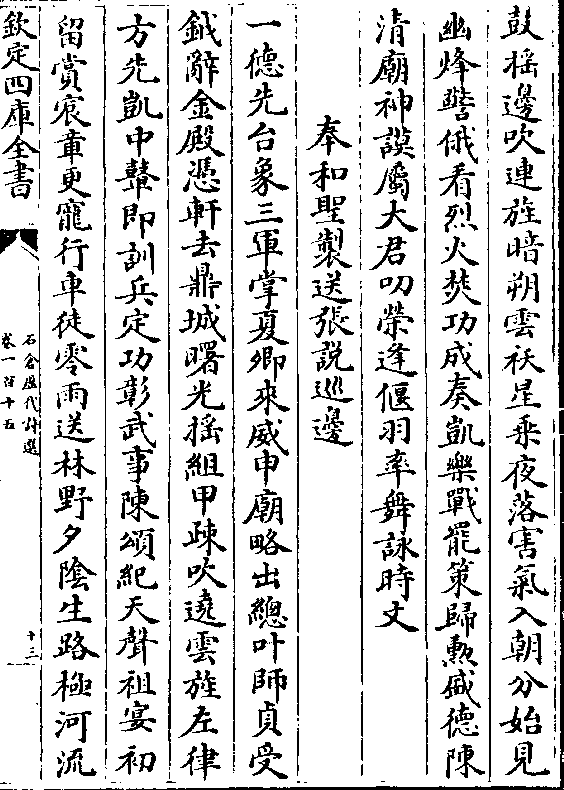 鼓摇邊吹連旌暗朔雲祅星乘夜落害氣入朝分始見
幽烽警俄看烈火焚功成奏凱樂戰罷策歸勲盛德陳
清廟神謨屬大君叨榮逢偃羽率舞詠時文
奉和聖製送張說巡邊
一德先台象三軍掌夏卿來威申廟略出總叶師貞受
鉞辭金殿憑軒去鼎城曙光揺組甲疎吹遶雲旌左律
方先凱中鼙即訓兵定功彰武事陳頌紀天聲祖宴初
留賞宸章更寵行車徒零雨送林野夕隂生路極河流
欽定四庫全書
石倉歴代詩選
卷一百十五
十三